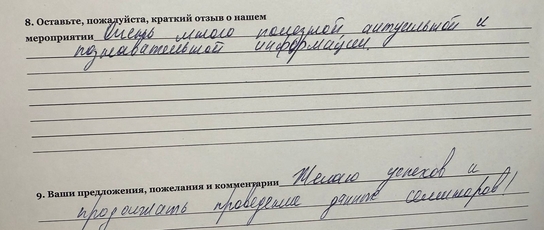 8. Оставьте, пожалуйста, краткий отзыв о нашем
мероприятии Очень много полезной, актуальной и
познавательной информации.
9. Ваши предложения, пожелания и комментарии Желаю успехов и
продолжать проведение данных семинаров!